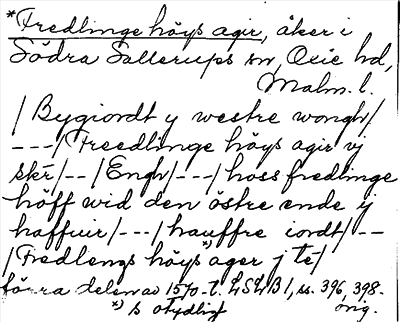 *Fredlinge höys agir, åker i
Södra Sallerups sn, Oxie hd,
Malm. l.
/ Bygiordt y westre wongh /
---/ Freedlinge höys agir vj
skr/--/Engh/---/ hoss fredlinge
höff wid den östre ende y
haffuir/---/ hauffre iordt/--
/ Fredlengs höys*) ager j te/
förra delen av 1570-t. LSLB 1, ss. 396, 398-
*) s otydligt orig.